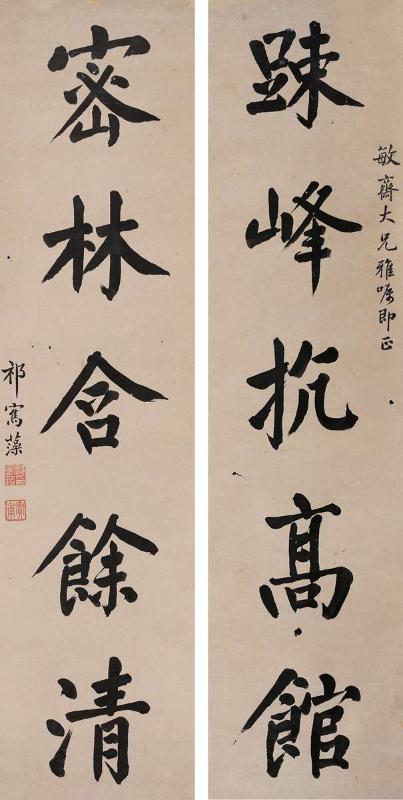 敏齋大兄雅嘱即正
踈峰抗高館
密林含餘清
祁寯藻